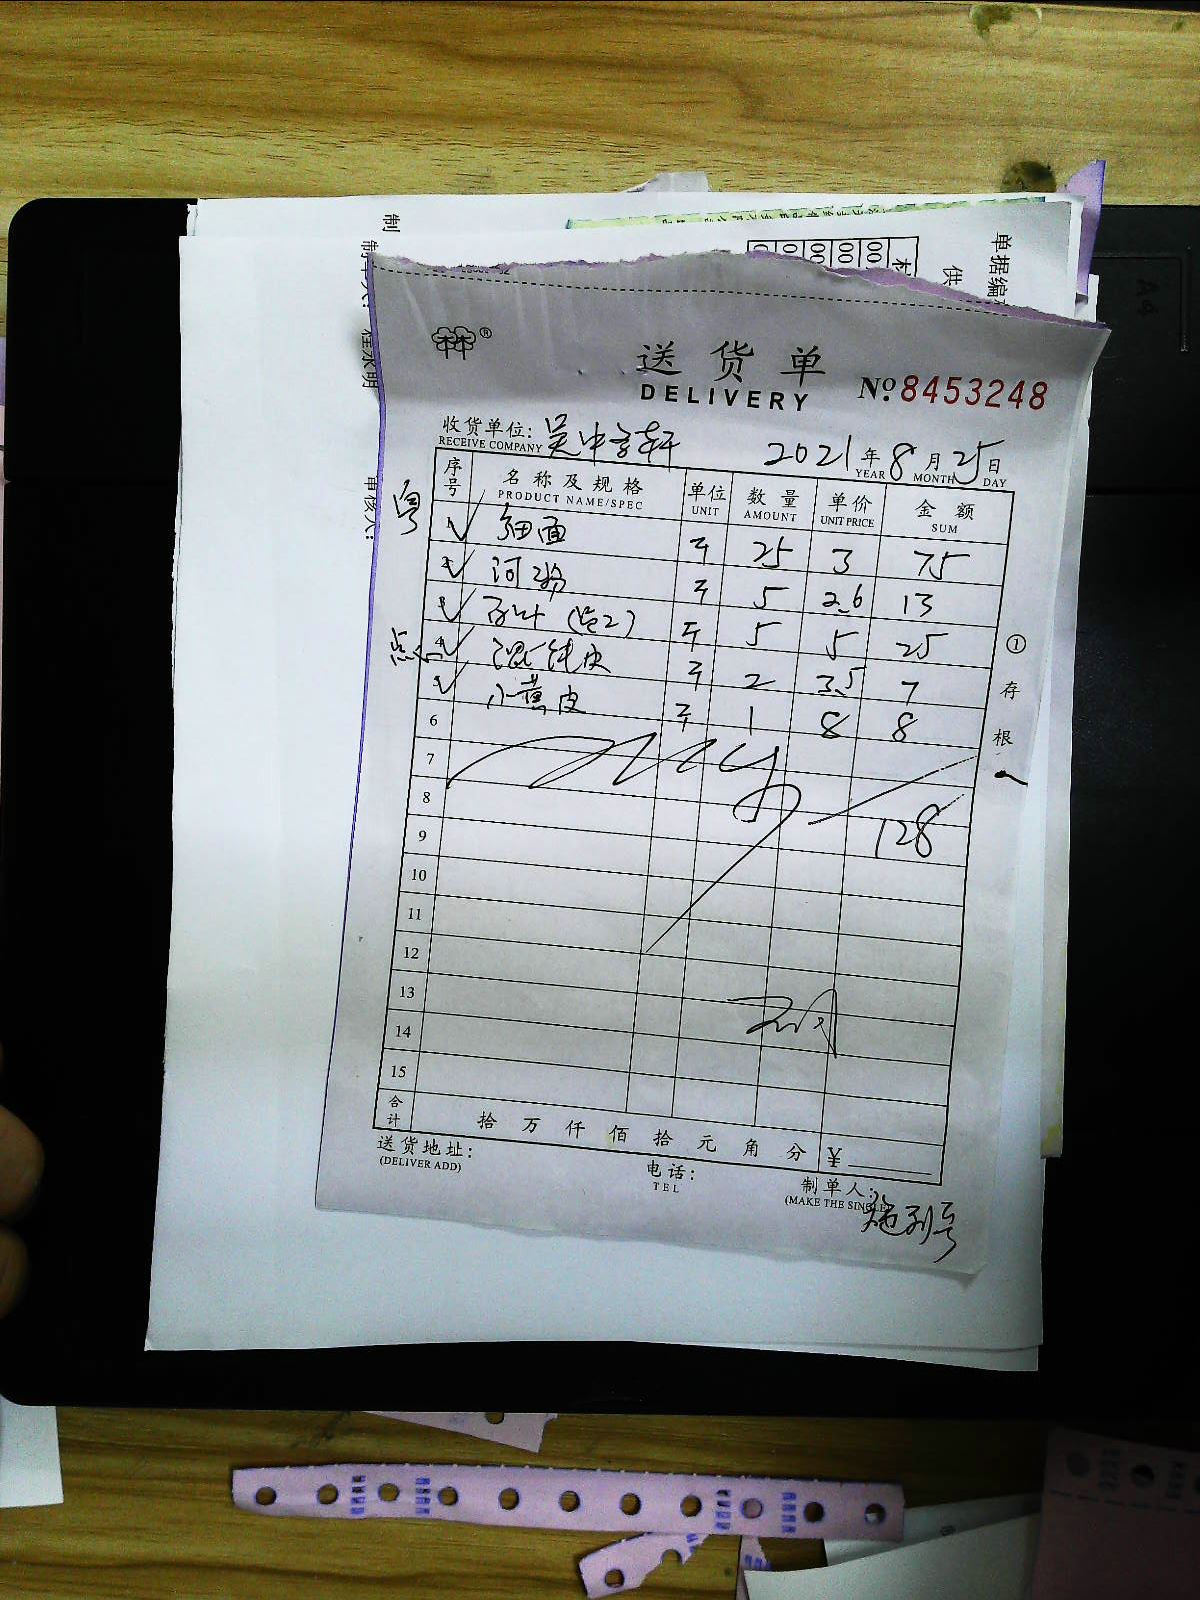 制
单据编
供
00 00 00 00 0
木
审核人:
林®
送货单
DELIVERY
№8453248
收货单位: 吴中
RECEIVE COMPANY
2021年8月25日
YEAR MONTH DAY
序号 名称及规格 单位 数量 单价 金额
PRODUCT NAME/SPEC UNIT AMOUNT UNIT PRICE SUM
粤
1 细面 斤 25 3 75
2 河粉 斤 5 2.6 13
3 斤 5 5 25
点心
4 混饨皮 斤 2 3.5 7
5 小蕉皮 斤 1 8 8
6
7
8 128
9
10
11
12
13
14
15
①存根
合计 拾万仟佰拾元角分 ¥
送货地址:
(DELIVER ADD)
电话:
TEL
制单人:
(MAKE THE SINGLE)